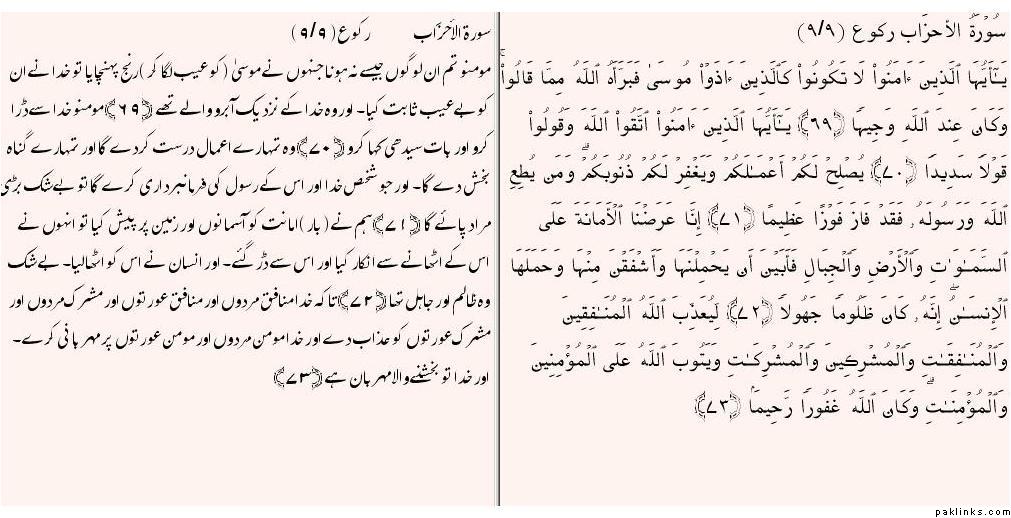 سُورَةُ الأحزَاب رکوع (۹/۹)
يَـٰٓأَيُّہَا ٱلَّذِينَ ءَامَنُواْ لَا تَكُونُواْ كَٱلَّذِينَ ءَاذَوۡاْ مُوسَىٰ فَبَرَّأَهُ ٱللَّهُ مِمَّا قَالُواْ‌ۚ
وَكَانَ عِندَ ٱللَّهِ وَجِيہً۬ا ﴿٦٩﴾ يَـٰٓأَيُّہَا ٱلَّذِينَ ءَامَنُواْ ٱتَّقُواْ ٱللَّهَ وَقُولُواْ
قَوۡلاً۬ سَدِيدً۬ا ﴿٧٠﴾ يُصۡلِحۡ لَكُمۡ أَعۡمَـٰلَكُمۡ وَيَغۡفِرۡ لَكُمۡ ذُنُوبَكُمۡ‌ۗ وَمَن يُطِعِ
ٱللَّهَ وَرَسُولَهُ ۥ فَقَدۡ فَازَ فَوۡزًا عَظِيمًا ﴿٧١﴾ إِنَّا عَرَضۡنَا ٱلۡأَمَانَةَ عَلَى
ٱلسَّمَـٰوَٲتِ وَٱلۡأَرۡضِ وَٱلۡجِبَالِ فَأَبَيۡنَ أَن يَحۡمِلۡنَہَا وَأَشۡفَقۡنَ مِنۡہَا وَحَمَلَهَا
ٱلۡإِنسَـٰنُ‌ۖ إِنَّهُ ۥ كَانَ ظَلُومً۬ا جَهُولاً۬ ﴿٧٢﴾ لِّيُعَذِّبَ ٱللَّهُ ٱلۡمُنَـٰفِقِينَ
وَٱلۡمُنَـٰفِقَـٰتِ وَٱلۡمُشۡرِڪِينَ وَٱلۡمُشۡرِكَـٰتِ وَيَتُوبَ ٱللَّهُ عَلَى ٱلۡمُؤۡمِنِينَ
وَٱلۡمُؤۡمِنَـٰتِ‌ۗ وَكَانَ ٱللَّهُ غَفُورً۬ا رَّحِيمَۢا ﴿٧٣﴾
سورة الأحزَاب رکوع (۹/۹)
مومنو تم ان لوگوں جیسے نہ ہونا جنہوں نے موسیٰ (کو عیب لگا کر) رنج پہنچایا تو خدا نے ان
کو بےعیب ثابت کیا۔ اور وہ خدا کے نزدیک آبرو والے تھے ﴿۶۹﴾ مومنو خدا سے ڈرا
کرو اور بات سیدھی کہا کرو ﴿۷۰﴾ وہ تمہارے اعمال درست کردے گا اور تمہارے گناہ
بخش دے گا۔ اور جو شخص خدا اور اس کے رسول کی فرمانبرداری کرے گا تو بےشک بڑی
مراد پائے گا ﴿۷۱﴾ ہم نے (بار) امانت کو آسمانوں اور زمین پر پیش کیا تو انہوں نے
اس کے اٹھانے سے انکار کیا اور اس سے ڈر گئے۔ اور انسان نے اس کو اٹھا لیا۔ بےشک
وہ ظالم اور جاہل تھا ﴿۷۲﴾ تاکہ خدا منافق مردوں اور منافق عورتوں اور مشرک مردوں اور
مشرک عورتوں کو عذاب دے اور خدا مومن مردوں اور مومن عورتوں پر مہربانی کرے۔
اور خدا تو بخشنے والا مہربان ہے ﴿۷۳﴾
paklinks.com